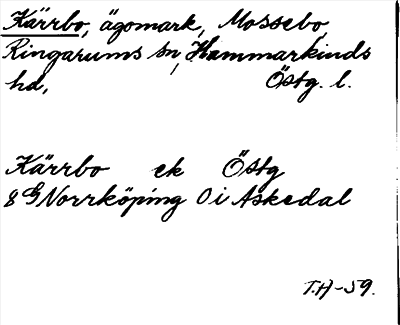 Kärrbo, ägomark, Mossebo,
Ringarums sn, Hammarkinds
hd, Östg. l.
Kärrbo ek Östg
8 G Norrköping O i Askedal
T.H-59.